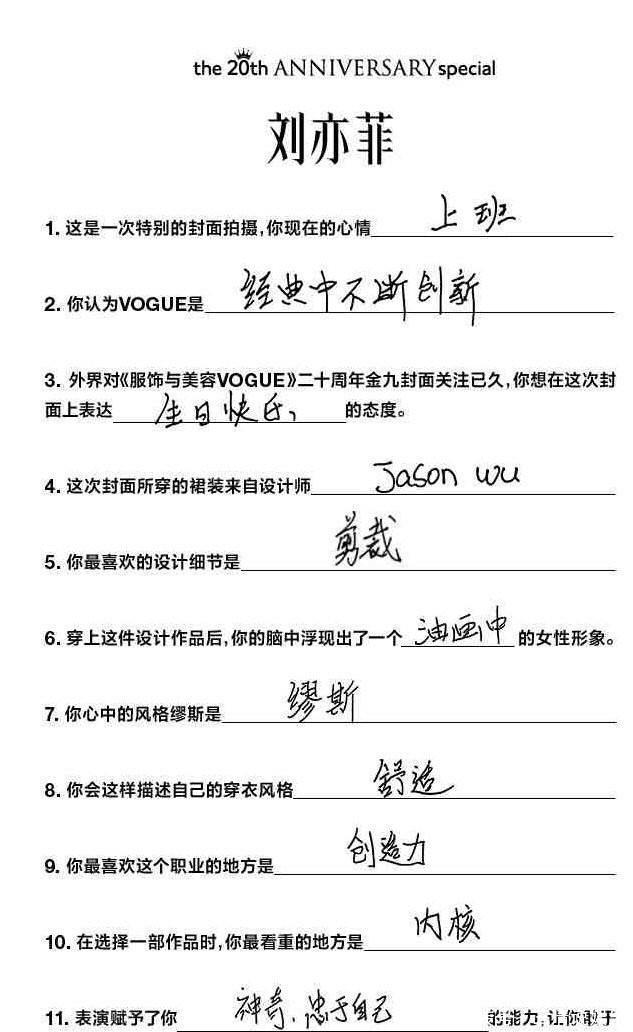 the 20th ANNIVERSARY special
刘亦菲
1. 这是一次特别的封面拍摄,你现在的心情 上班
2. 你认为VOGUE是 经典中不断创新
3. 外界对《服饰与美容VOGUE》二十周年金九封面关注已久,你想在这次封
面上表达 生日快乐, 的态度。
4. 这次封面所穿的裙装来自设计师 Jason wu
5. 你最喜欢的设计细节是 剪裁
6. 穿上这件设计作品后,你的脑中浮现出了一个 油画中 的女性形象。
7. 你心中的风格缪斯是 缪斯
8. 你会这样描述自己的穿衣风格 舒适
9. 你最喜欢这个职业的地方是 创造力
10. 在选择一部作品时,你最看重的地方是 内核
11. 表演赋予了你 神奇、忠于自己 的能力,让你敢于